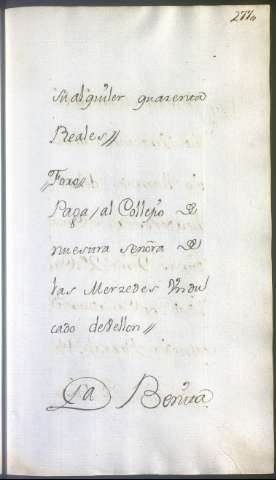 271
su alquiler quarenta
Reales//
//Foro//
Paga/al Collegio de
nuestra señora de
las Merzedes Un du
cado de Vellon//
La Renta